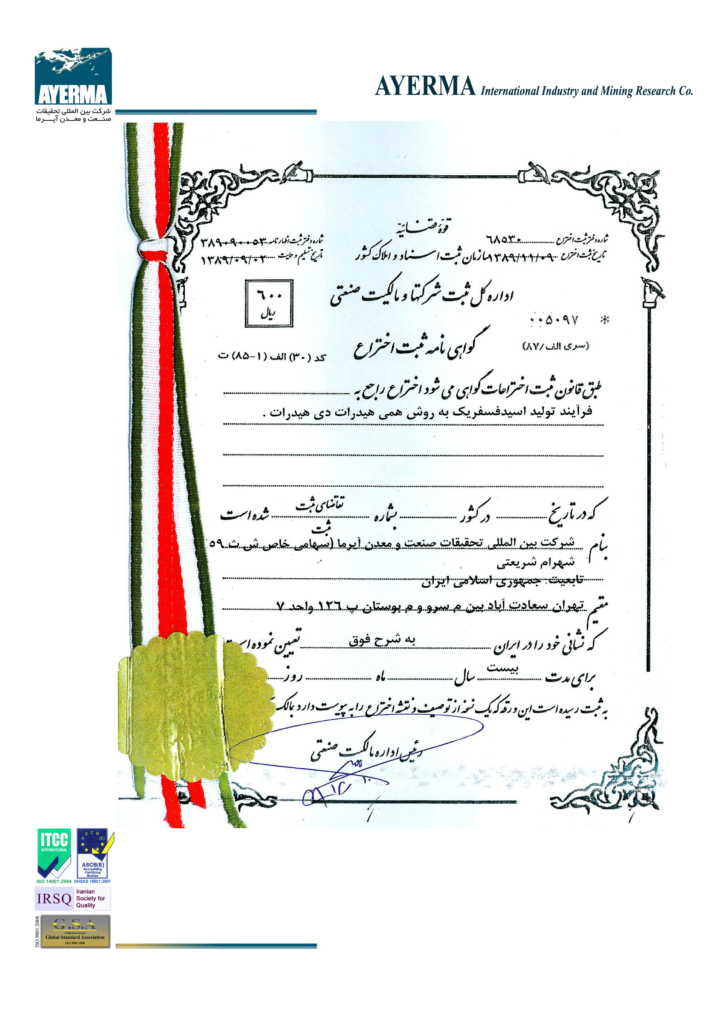 AYERMA
شرکت بین المللی تحقیقات
صنعت و معدن آیرما
AYERMA International Industry and Mining Research Co.
قوهٔ قضائیه
شماره دفتر ثبت اختراع ۶۸۵۳۰
شماره دفتر ثبت اظهارنامه ۳۸۹۰۹۰۰۵۳
تاریخ ثبت اختراع ۱۳۸۹/۱۱/۰۹
سازمان ثبت اسناد و املاک کشور
تاریخ تسلیم و حمایت ۱۳۸۹/۰۹/۰۲
اداره کل ثبت شرکتها و مالکیت صنعتی
۶۰۰
ریال
* ۰۰۵۰۹۷
(سری الف/۸۷)
گواهی نامه ثبت اختراع
کد (۳۰) الف (۱-۸۵) ت
طبق قانون ثبت اختراعات گواهی می شود اختراع راجع به
فرآیند تولید اسیدفسفریک به روش همی هیدرات دی هیدرات .
که در تاریخ در کشور بشماره تقاضای ثبت شده است
ثبت
بنام شرکت بین المللی تحقیقات صنعت و معدن آیرما (سهامی خاص ش ث ۵۹
شهرام شریعتی
تابعیت: جمهوری اسلامی ایران
مقیم تهران سعادت آباد بین م سرو و م بوستان پ ۱۲۶ واحد ۷
که نشانی خود را در ایران به شرح فوق تعیین نموده است
برای مدت بیست سال ماه روز
به ثبت رسیده است این ورقه که یک نسخه از توصیف و نقشه اختراع را به پیوست دارد بمالک
رئیس اداره مالکیت صنعتی
ITCC
INTERNATIONAL
ISO 14001:2004
ASCB(E)
Accrediting
Certifying
Bodies
OHSAS 18001:2007
IRSQ Iranian
Society for
Quality
ISO 9001:2008
G.S.A
Global Standard Association
ISO 9001:2008